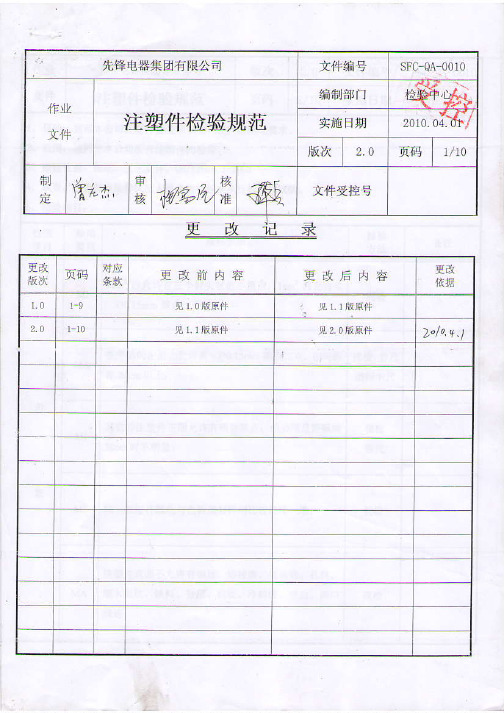 先锋电器集团有限公司 文件编号 SFC-QA-0010
作业文件 注塑件检验规范 编制部门 检验中心
受控
实施日期 2010.04.01
版次 2.0 页码 1/10
制定 审核 核准 文件受控号
更 改 记 录
更改版次 页码 对应条款 更 改 前 内 容 更 改 后 内 容 更改依据
1.0 1-9 见1.0版原件 见1.1版原件
2.0 1-10 见1.1版原件 见2.0版原件 2010.4.1